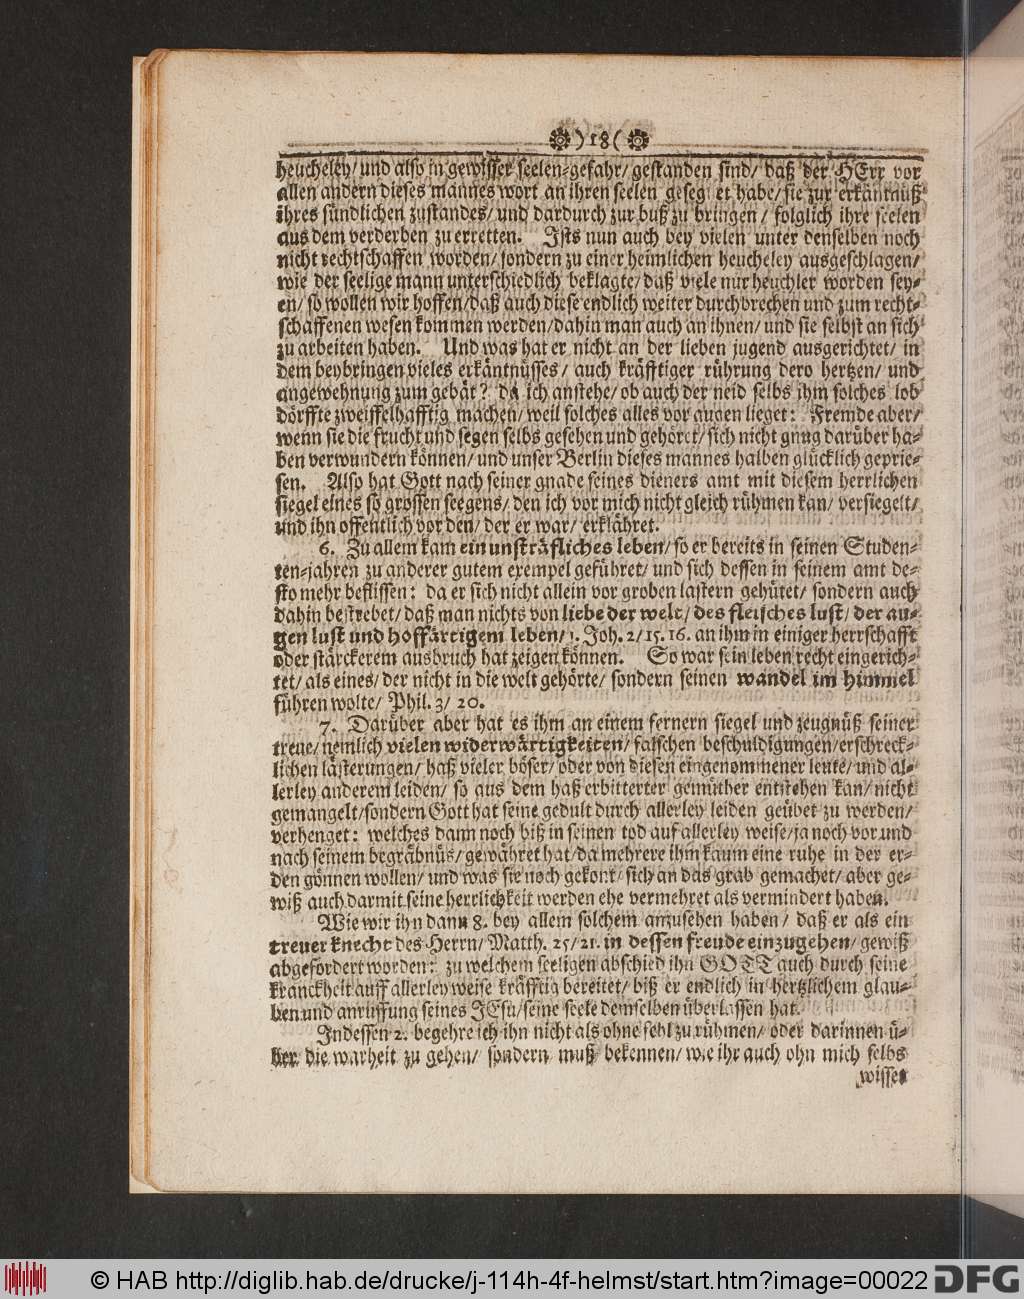 )18(
heucheley/ und also in gewisser seelen-gefahr/ gestanden sind/ daß der HErr vor
allen andern dieses mannes wort an ihren seelen gesegnet habe/ sie zur erkäntnüß
ihres sündlichen zustandes/ und dardurch zur buß zu bringen/ folglich ihre seelen
aus dem verderben zu erretten. Ists nun auch bey vielen unter denselben noch
nicht rechtschaffen worden/ sondern zu einer heimlichen heucheley ausgeschlagen/
wie der seelige mann unterschiedlich beklagte/ daß viele nur heuchler worden sey-
en/ so wollen wir hoffen/ daß auch diese endlich weiter durchbrechen und zum recht-
schaffenen wesen kommen werden/ dahin man auch an ihnen/ und sie selbst an sich
zu arbeiten haben. Und was hat er nicht an der lieben jugend ausgerichtet/ in
dem beybringen vieles erkäntnüsses/ auch kräfftiger rührung dero hertzen/ und
angewehnung zum gebät? da ich anstehe/ ob auch der neid selbs ihm solches lob
dörffte zweiffelhafftig machen/ weil solches alles vor augen lieget: Fremde aber/
wenn sie die frucht und segen selbs gesehen und gehöret/ sich nicht gnug darüber ha-
ben verwundern können/ und unser Berlin dieses mannes halben glücklich geprie-
sen. Also hat Gott nach seiner gnade seines dieners amt mit diesem herrlichen
siegel eines so grossen seegens/ den ich vor mich nicht gleich rühmen kan/ versiegelt/
und ihn offentlich vor den/ der er war/ erklähret.
6. Zu allem kam ein unsträfliches leben/ so er bereits in seinen Studen-
ten-jahren zu anderer gutem exempel geführet/ und sich dessen in seinem amt de-
sto mehr beflissen: da er sich nicht allein vor groben lastern gehütet/ sondern auch
dahin bestrebet/ daß man nichts von liebe der welt/ des fleisches lust/ der au-
gen lust und hoffärtigem leben/ 1. Joh. 2/ 15. 16. an ihm in einiger herrschafft
oder stärckerem ausbruch hat zeigen können. So war sein leben recht eingerich-
tet/ als eines/ der nicht in die welt gehörte/ sondern seinen wandel im himmel
führen wolte/ Phil. 3/ 20.
7. Darüber aber hat es ihm an einem fernern siegel und zeugnüß seiner
treue/ nemlich vielen widerwärtigkeiten/ falschen beschuldigungen/ erschreck-
lichen lästerungen/ haß vieler böser/ oder von diesen eingenommener leute/ und al-
lerley anderem leiden/ so aus dem haß erbitterter gemüther entstehen kan/ nicht
gemangelt/ sondern Gott hat seine gedult durch allerley leiden geübet zu werden/
verhenget: welches dann noch biß in seinen tod auf allerley weise/ ja noch vor und
nach seinem begräbnüs/ gewähret hat/ da mehrere ihm kaum eine ruhe in der er-
den gönnen wollen/ und was sie noch gekont/ sich an das grab gemachet/ aber ge-
wiß auch darmit seine herrlichkeit werden ehe vermehret als vermindert haben.
Wie wir ihn dann 8. bey allem solchem anzusehen haben/ daß er als ein
treuer knecht des Herrn/ Matth. 25/ 21. in dessen freude einzugehen/ gewiß
abgefordert worden: zu welchem seeligen abschied ihn GOTT auch durch seine
kranckheit auff allerley weise kräfftig bereitet/ biß er endlich in hertzlichem glau-
ben und anruffung seines JEsu/ seine seele demselben überlassen hat.
Indessen 2. begehre ich ihn nicht als ohne fehl zu rühmen/ oder darinnen ü-
ber die warheit zu gehen/ sondern muß bekennen/ wie ihr auch ohn mich selbs
wisset
© HAB http://diglib.hab.de/drucke/j-114h-4f-helmst/start.htm?image=00022 DFG